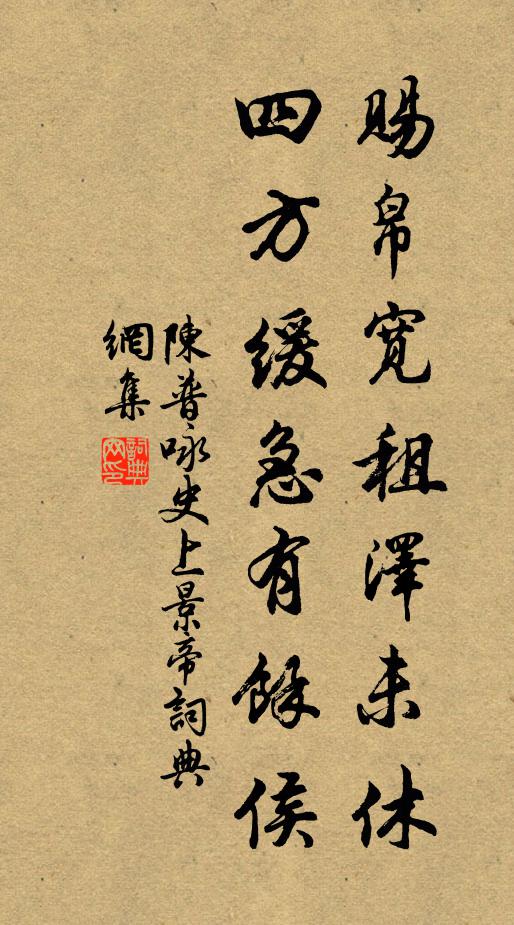 賜帛寬租澤未休
四方緩急有餘侯
陳普咏史上景帝詞典
網集
詞典
网印